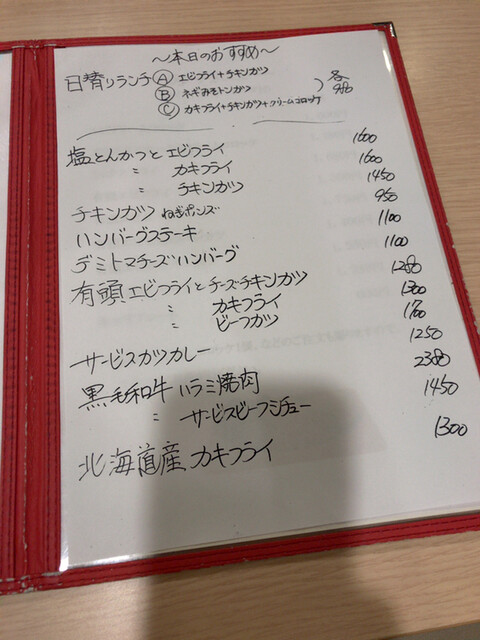 〜本日のおすすめ〜
日替りランチ Ⓐ エビフライ+チキンカツ
Ⓑ ネギみそトンカツ 各980
Ⓒ カキフライ+チキンカツ+クリームコロッケ
塩とんかつと エビフライ 1600
〃 カキフライ 1600
〃 チキンカツ 1450
チキンカツ ねぎポンズ 950
ハンバーグステーキ 1100
デミトマチーズハンバーグ 1100
有頭エビフライとチーズチキンカツ 1280
〃 カキフライ 1300
〃 ビーフカツ 1700
サービスカツカレー 1250
黒毛和牛 ハラミ焼肉 2380
〃 サービスビーフシチュー 1450
北海道産 カキフライ 1300